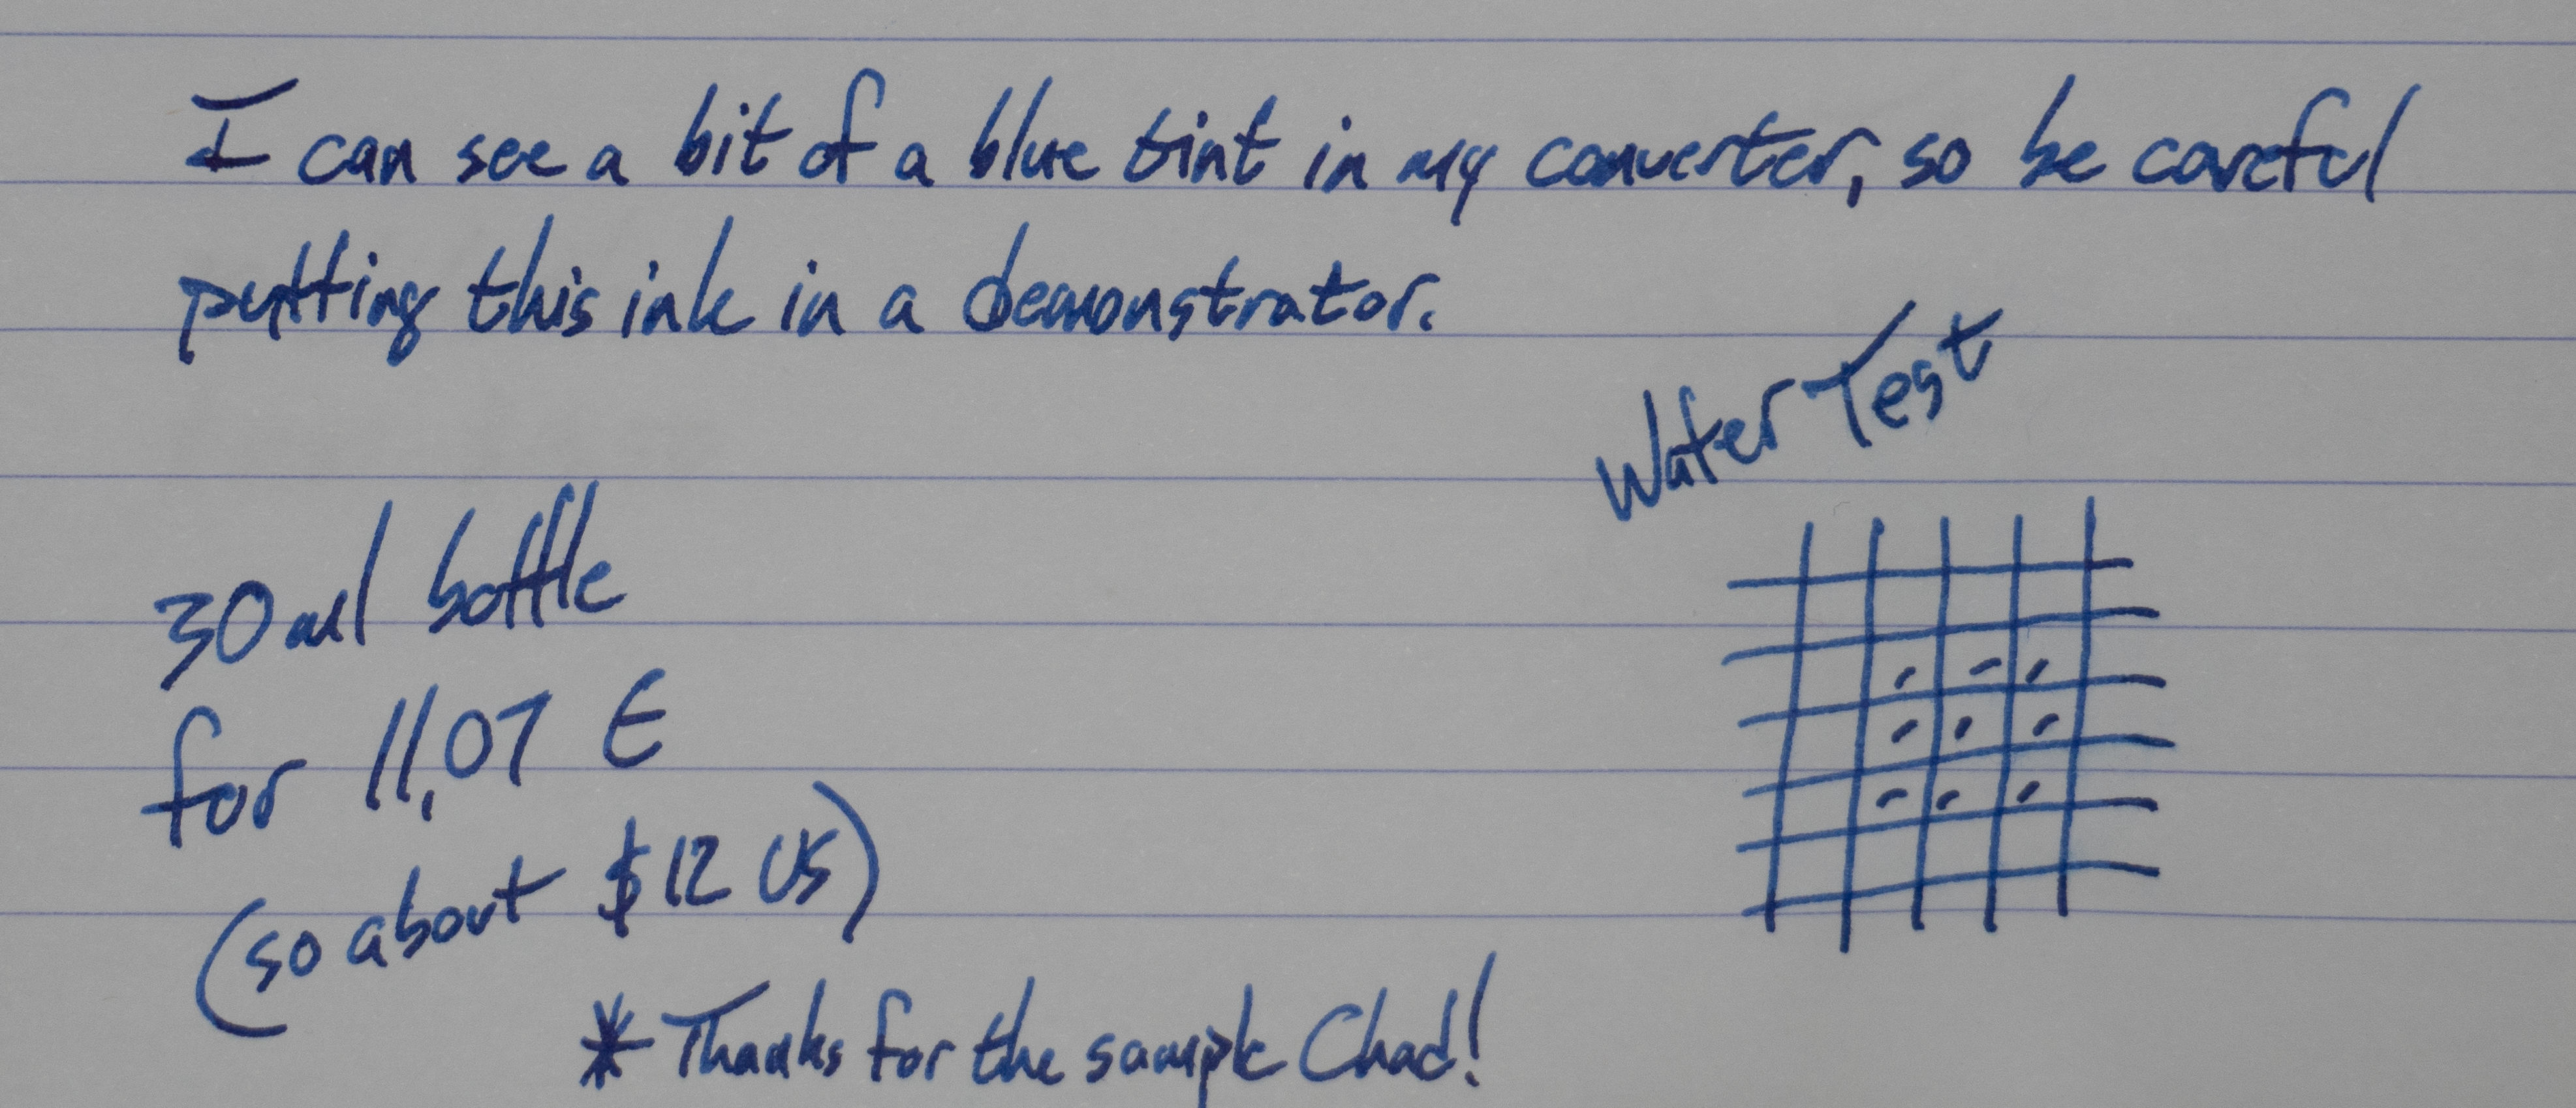 I can see a bit of a blue tint in my converter, so be careful
putting this ink in a demonstrator.
Water Test
30ml bottle
for 11,07 €
(so about $12 US)
* Thanks for the sample Chad!